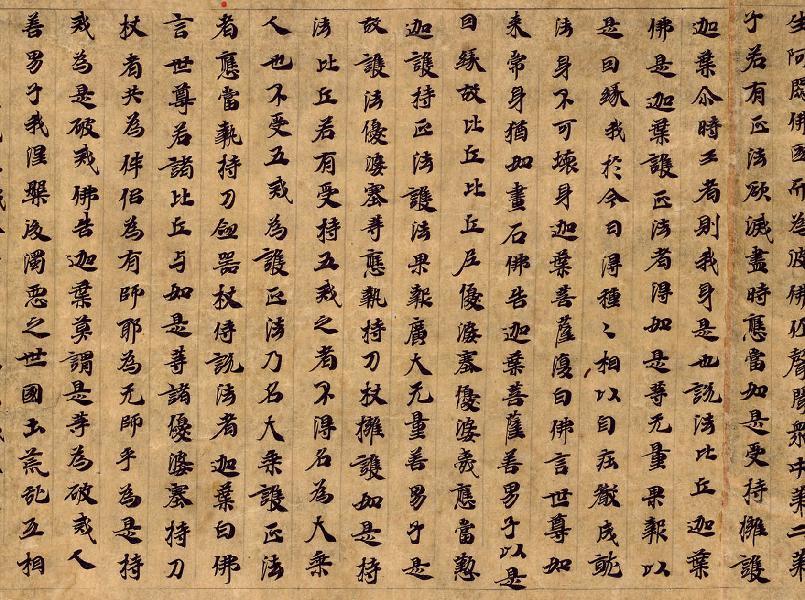 生阿閦佛國而為彼佛作聲聞眾中第二弟
子若有正法欲滅盡時應當如是受持擁護
迦葉尒時王者則我身是也說法比丘迦葉
佛是迦葉護正法者得如是等无量果報以
是因緣我於今日得種〻相以自莊嚴成就
法身不可壞身迦葉菩薩復白佛言世尊如
来常身猶如畫石佛告迦葉菩薩善男子以是
因緣故比丘比丘尼優婆塞優婆夷應當懃
迦護持正法護法果報廣大无量善男子是
故護法優婆塞等應執持刀杖擁護如是持
法比丘若有受持五戒之者不得名為大乗
人也不受五戒為護正法乃名大乗護正法
者應當執持刀劔器杖侍說法者迦葉白佛
言世尊若諸比丘与如是等諸優婆塞持刀
杖者共為伴侣為有師耶為无師乎為是持
戒為是破戒佛告迦葉莫謂是等為破戒人
善男子我涅槃後濁惡之世國土荒乱互相